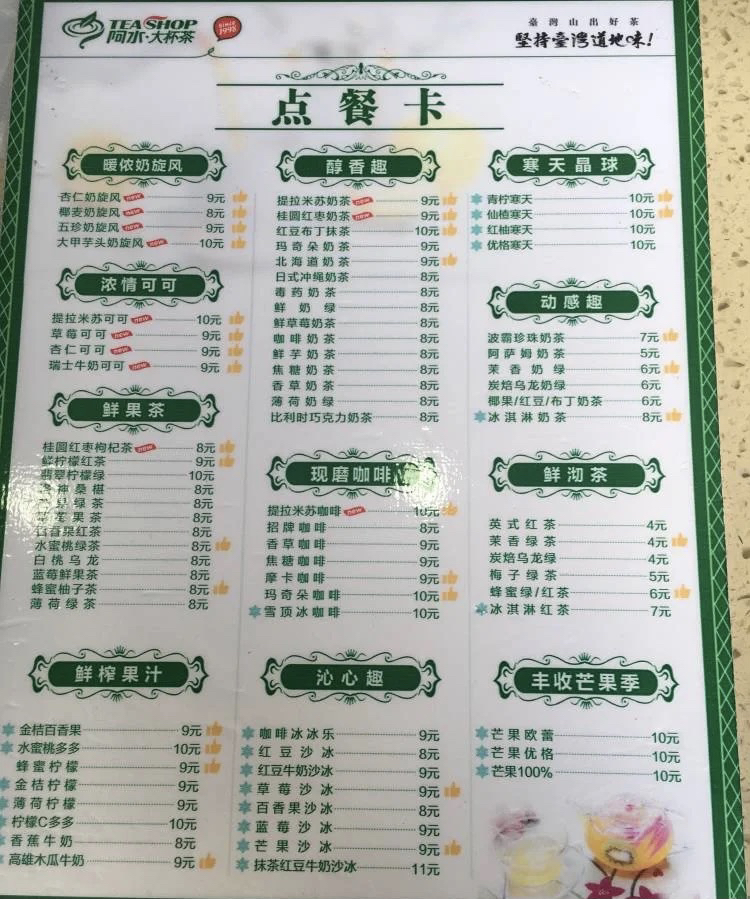 TEA SHOP
阿水·大杯茶
since 1998
臺灣山出好茶
坚持臺灣道地味!
点餐卡
暖侬奶旋风
杏仁奶旋风 new 9元
椰麦奶旋风 new 8元
五珍奶旋风 new 9元
大甲芋头奶旋风 new 10元
浓情可可
提拉米苏可可 new 10元
草莓可可 new 9元
杏仁可可 new 9元
瑞士牛奶可可 new 9元
鲜果茶
桂圆红枣枸杞茶 new 8元
鲜柠檬红茶 9元
翡翠柠檬绿 10元
神桑椹 8元
绿茶 8元
果茶 8元
百香果红茶 8元
水蜜桃绿茶 8元
白桃乌龙 8元
蓝莓鲜果茶 8元
蜂蜜柚子茶 8元
薄荷绿茶 8元
鲜榨果汁
金桔百香果 9元
水蜜桃多多 10元
蜂蜜柠檬 9元
金桔柠檬 9元
薄荷柠檬 9元
柠檬C多多 10元
香蕉牛奶 9元
高雄木瓜牛奶 9元
醇香趣
提拉米苏奶茶 new 9元
桂圆红枣奶茶 new 9元
红豆布丁抹茶 10元
玛奇朵奶茶 9元
北海道奶茶 9元
日式冲绳奶茶 8元
毒药奶茶 8元
鲜奶绿 8元
鲜草莓奶茶 8元
咖啡奶茶 8元
鲜芋奶茶 8元
焦糖奶茶 8元
香草奶茶 8元
薄荷奶绿 8元
比利时巧克力奶茶 8元
现磨咖啡
提拉米苏咖啡 new 10元
招牌咖啡 8元
香草咖啡 9元
焦糖咖啡 9元
摩卡咖啡 9元
玛奇朵咖啡 10元
雪顶冰咖啡 10元
沁心趣
咖啡冰冰乐 9元
红豆沙冰 8元
红豆牛奶沙冰 9元
草莓沙冰 9元
百香果沙冰 9元
蓝莓沙冰 9元
芒果沙冰 9元
抹茶红豆牛奶沙冰 11元
寒天晶球
青柠寒天 10元
仙楂寒天 10元
红柚寒天 10元
优格寒天 10元
动感趣
波霸珍珠奶茶 7元
阿萨姆奶茶 5元
茉香奶绿 6元
炭焙乌龙奶绿 6元
椰果/红豆/布丁奶茶 6元
冰淇淋奶茶 8元
鲜沏茶
英式红茶 4元
茉香绿茶 4元
炭焙乌龙绿 4元
梅子绿茶 5元
蜂蜜绿/红茶 6元
冰淇淋红茶 7元
丰收芒果季
芒果欧蕾 10元
芒果优格 10元
芒果100% 10元